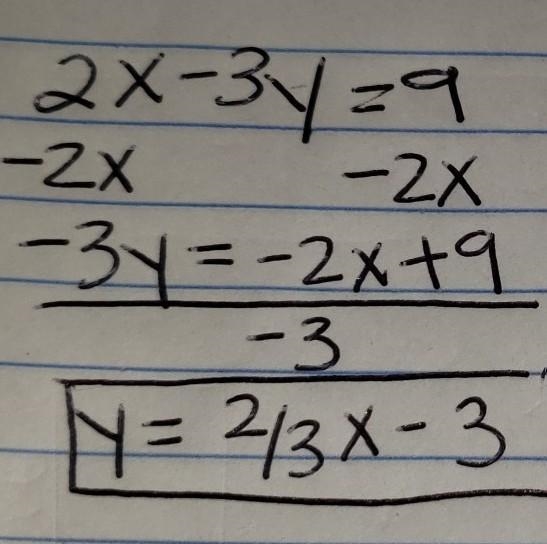 2x-3y=9
-2x -2x
-3y=-2x+9
-3
y=2/3x-3